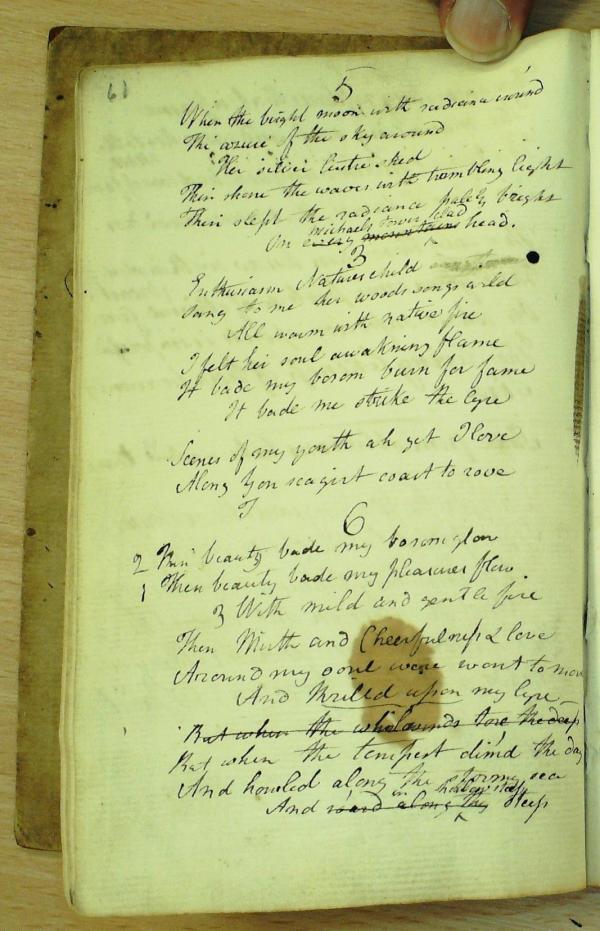 61
5
When the bright moon with radiance crownd
The azure of the sky around
Her silver lustre shed
Then shone the waves with trembling light
Then slept the radiance palely bright
michaels tower clad
On every mountains head.
3
Enthusiasm Natures child
Sang to me her woods songs wild
All warm with native fire
I felt her soul awakning flame
It bade my bosom burn for fame
It bade me strike the lyre
Scenes of my youth ah yet I love
Along yon seagirt coast to rove
6
2 Then beauty bade my bosom glow
1 Then beauty bade my pleasures flow
3 With mild and gentle fire
Then Mirth and Cheerfulness & love
Around my soul were wont to move
And thrilled upon my lyre
But when the whilwinds tore the deep
But when the tempest dim'd the day
And howled along the stormy sea
in hollow
And roard along the steep